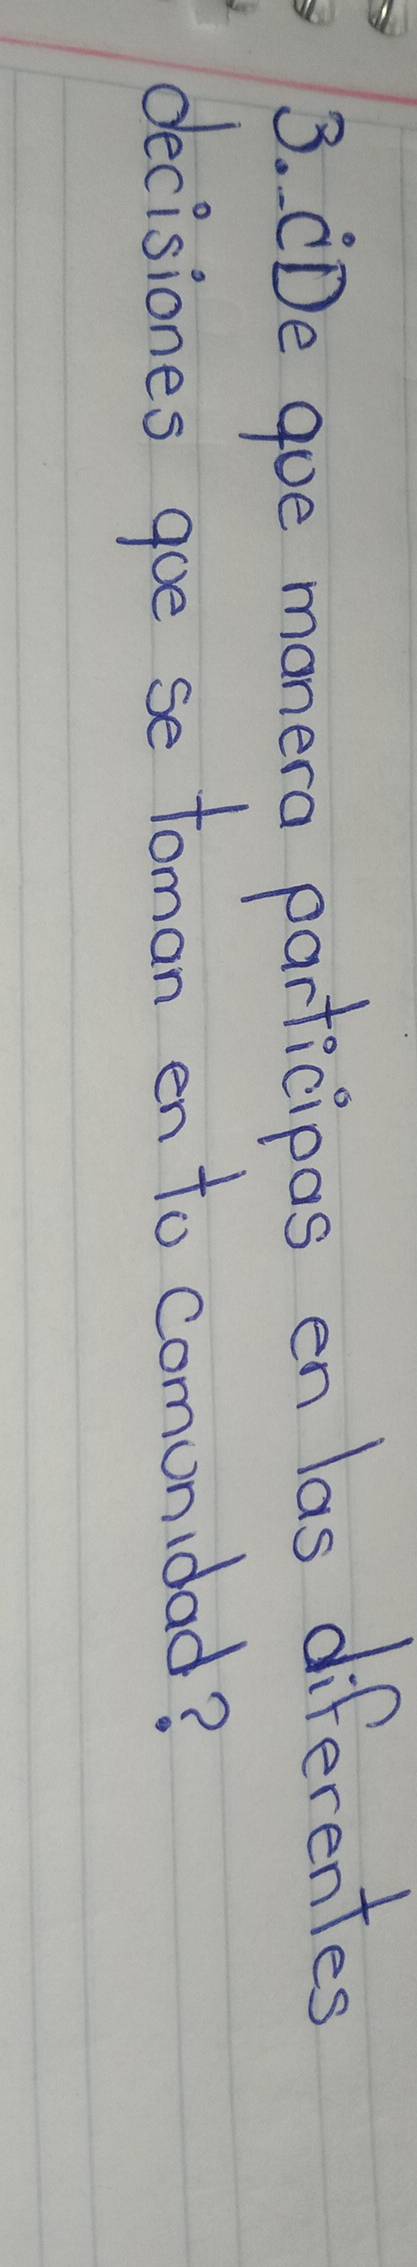 3.-¿De que manera participas en las diferentes
decisiones que se toman en tu comunidad?